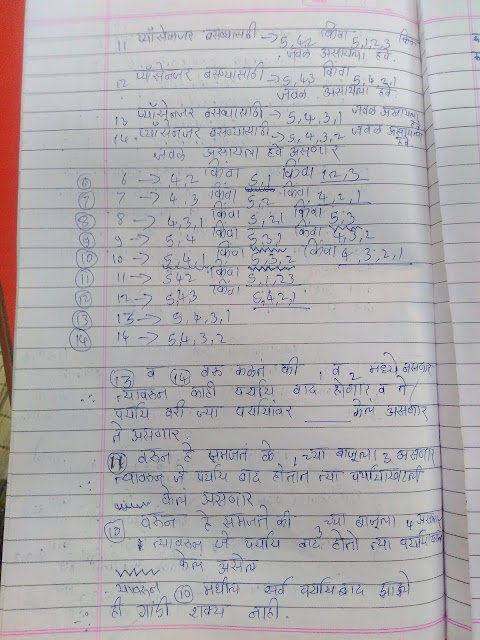 11 प्यॅासेनजर बसव्यासाठी → 5,4,2 किंवा 5,1,2,3 किंवा
जवळ असायला हवे.
12 प्यॅासेनजर बसव्यासाठी → 5,4,3 किंवा 5,4,2,1
जवळ असायला हवे
13 प्यॅासेनजर बसव्यासाठी → 5,4,3,1 जवळ असायला हवे
14 प्यॅासेनजर बसव्यासाठी → 5,4,3,2 जवळ असायला
जवळ असायला हवे असणार
⑥ 6 → 4,2 किंवा 5,1 किंवा 1,2,3
⑦ 7 → 4,3 किंवा 5,2 किंवा 4,2,1
⑧ 8 → 4,3,1 किंवा 5,2,1 किंवा 5,3
⑨ 9 → 5,4 किंवा 5,3,1 किंवा 4,3,2
⑩ 10 → 5,4,1 किंवा 5,3,2 किंवा 4,3,2,1
⑪ 11 → 542 किंवा 5,1,23
⑫ 12 → 5,43 किंवा 5,4,2,1
⑬ 13 → 5,4,3,1
⑭ 14 → 5,4,3,2
⑬ व ⑭ वरून कळतं की 1 व 2 मध्ये असणार
∴ त्यावरून काही पर्याय बाद होणार व ते
पर्याय वरी ज्या पर्यायांवर ____ केलं असणार
ते असणार.
⑪ वरून हे समजतं के 1 च्या बाजूला 3 असणार
∴ त्यावरून जे पर्याय बाद होतील त्या पर्यायाखाली
केलं असणार
⑩ वरून हे समजते की 3 च्या बाजूला 4 असणार
∴ त्यावरून जे पर्याय बाद होतो त्या पर्यायाखाली
केलं असेल
∴ यावरून ⑩ मधील सर्व पर्याय बाद झाले
ही गोष्टी शक्य नाही.